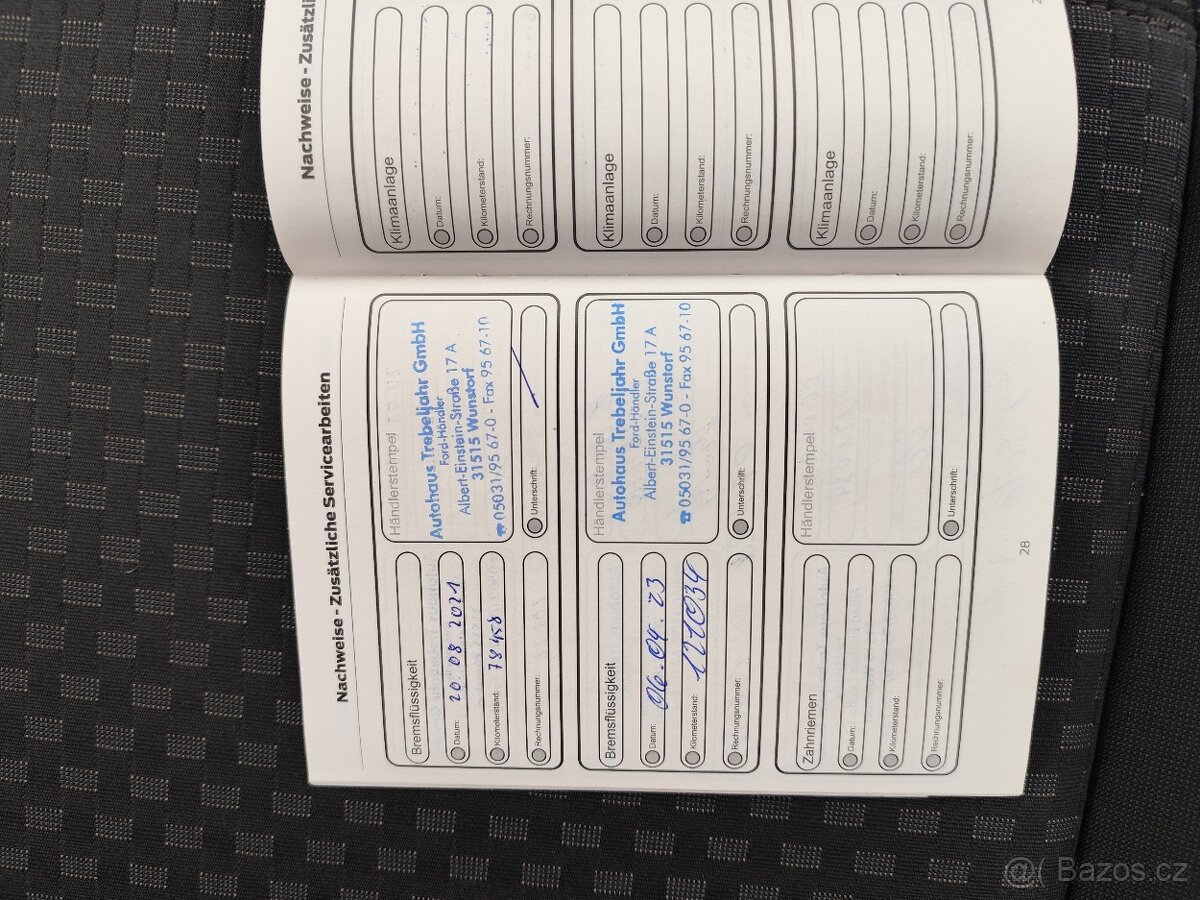 Nachweise - Zusätzliche Servicearbeiten
Bremsflüssigkeit
Datum: 20.08.2021
Kilometerstand: 78458
Rechnungsnummer:
Händlerstempel
Autohaus Trebeljahr GmbH
Ford-Händler
Albert-Einstein-Straße 17 A
31515 Wunstorf
☎ 05031/95 67-0 - Fax 95 67-10
Unterschrift:
Bremsflüssigkeit
Datum: 06.04.23
Kilometerstand: 121034
Rechnungsnummer:
Händlerstempel
Autohaus Trebeljahr GmbH
Ford-Händler
Albert-Einstein-Straße 17 A
31515 Wunstorf
☎ 05031/95 67-0 - Fax 95 67-10
Unterschrift:
Zahnriemen
Datum:
Kilometerstand:
Rechnungsnummer:
Händlerstempel
Unterschrift:
28
Nachweise - Zusätzli
Klimaanlage
Datum:
Kilometerstand:
Rechnungsnummer:
Klimaanlage
Datum:
Kilometerstand:
Rechnungsnummer:
Klimaanlage
Datum:
Kilometerstand:
Rechnungsnummer:
Bazos.cz